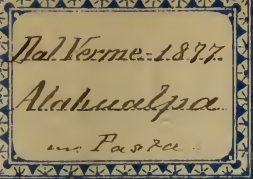 Dal Verme - 1877.
Atahualpa
Pasta